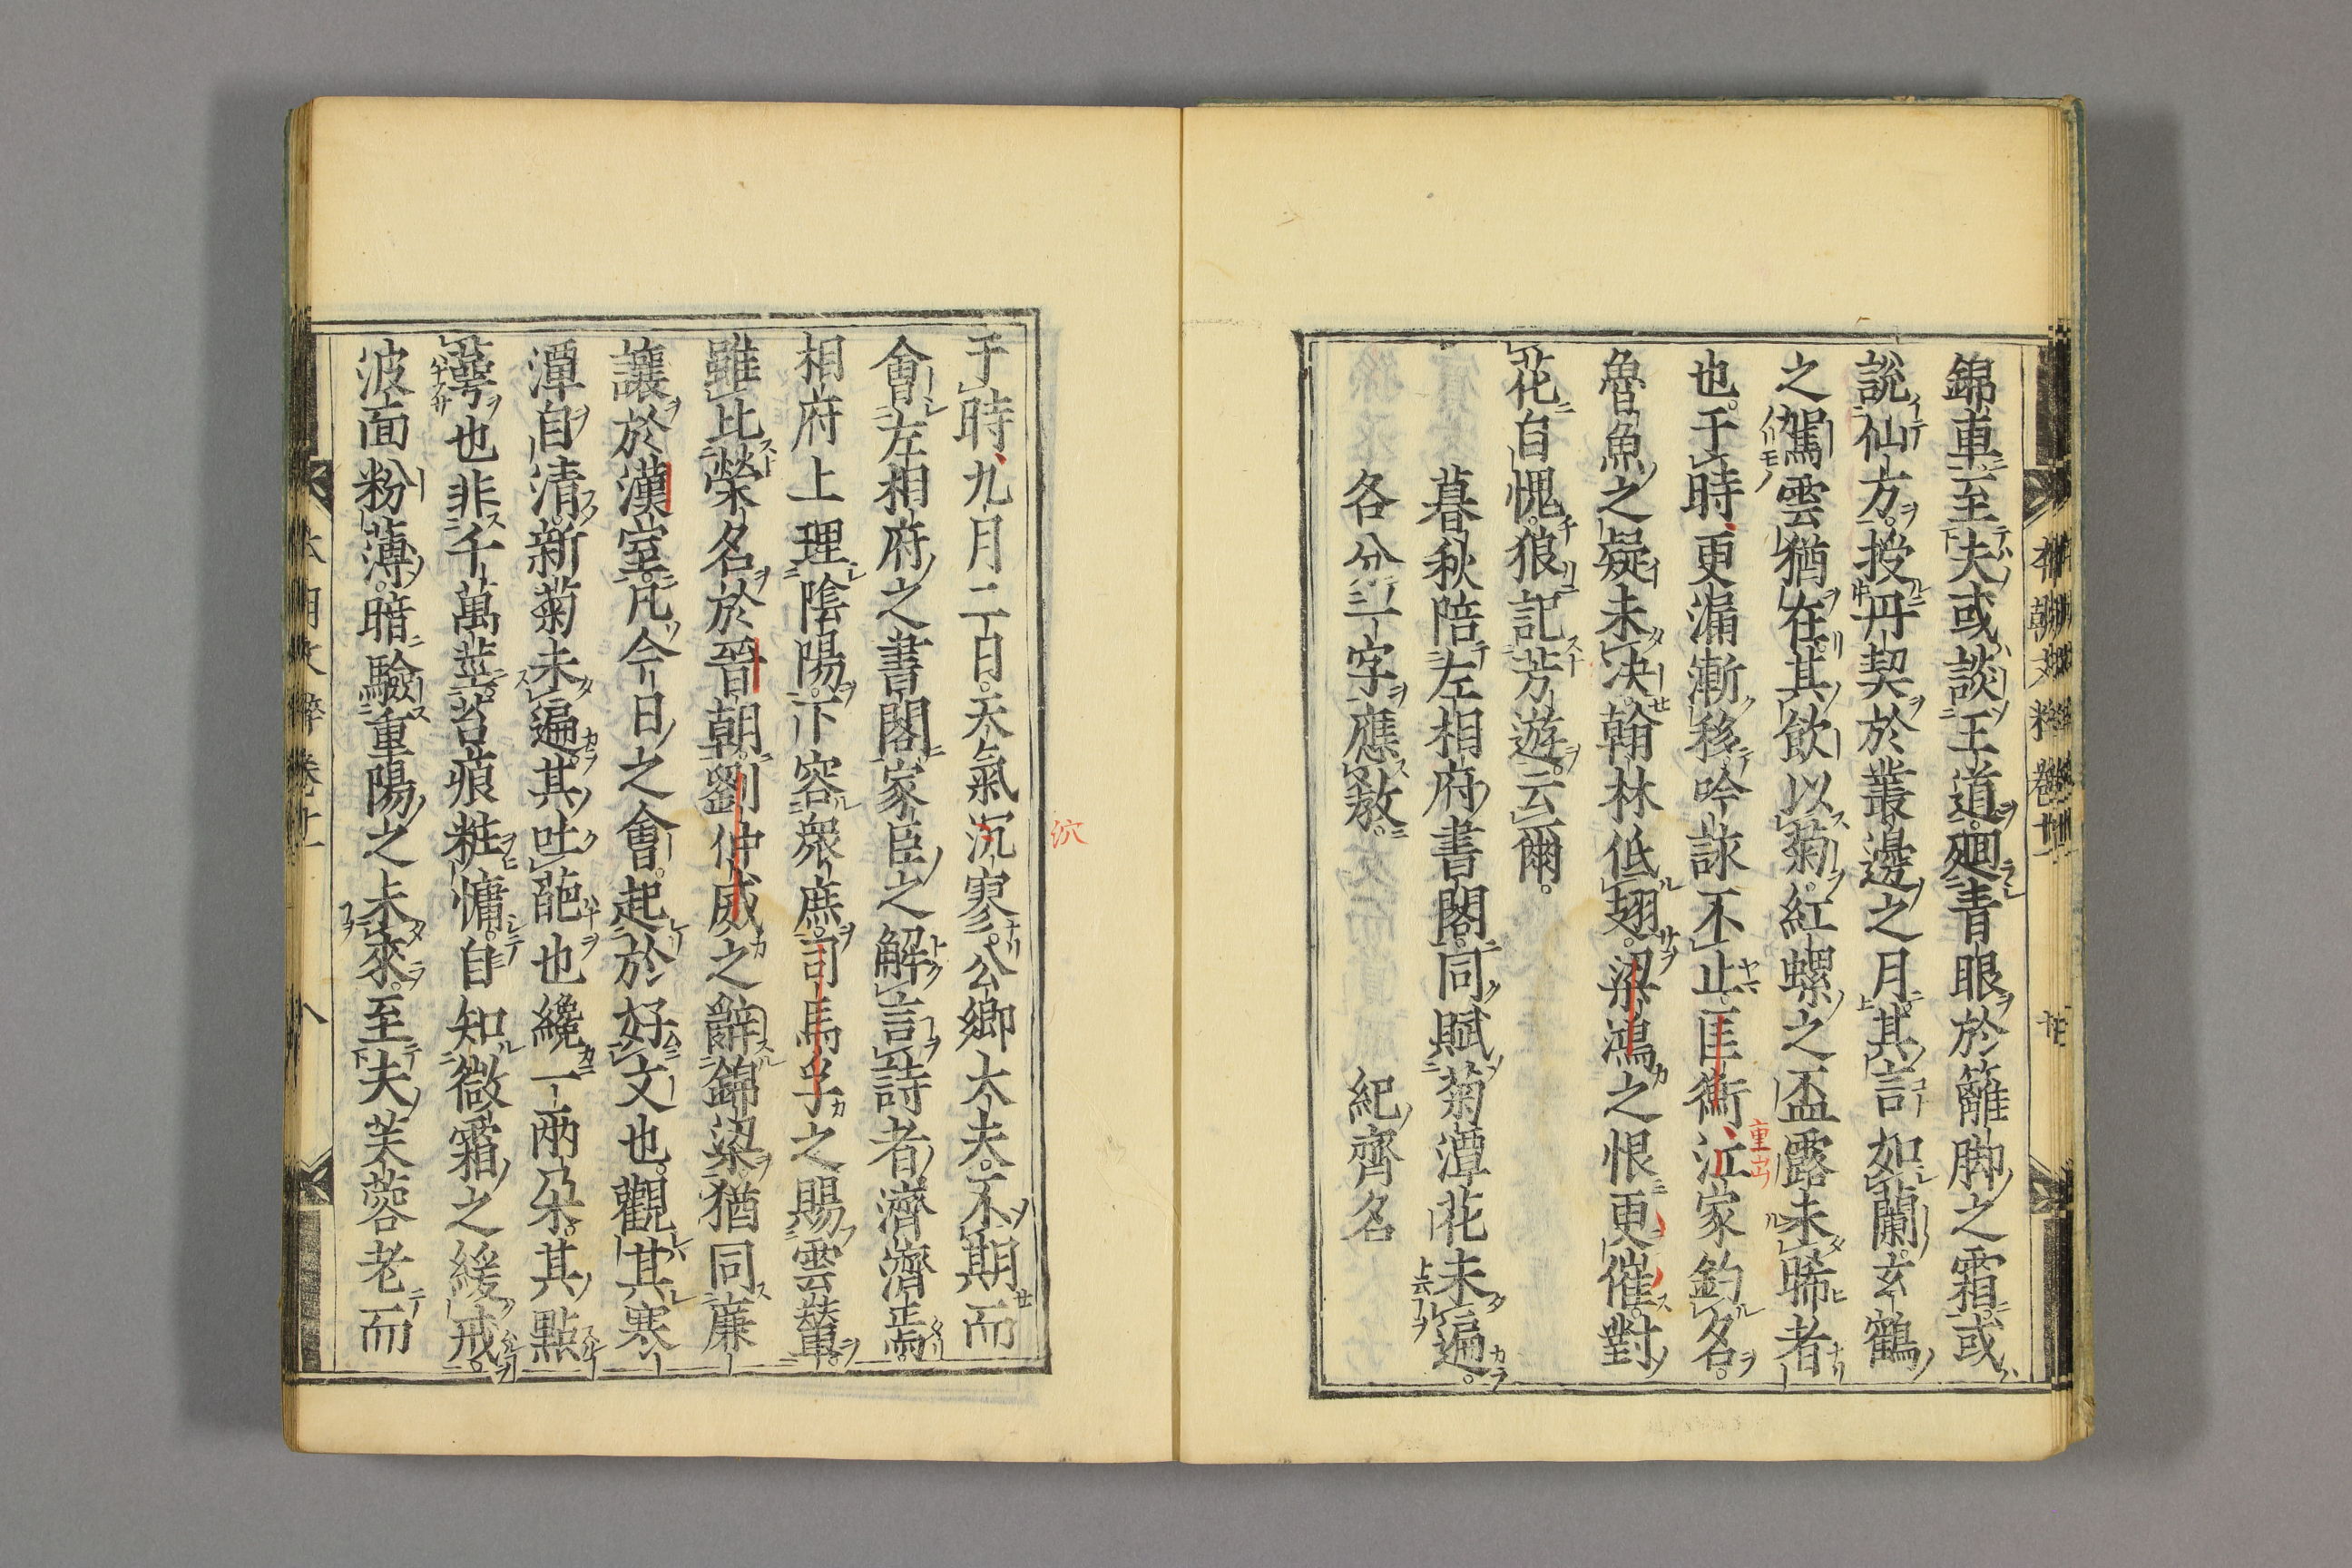 錦車至夫或談王道廻青眼於籬脚之霜或
說仙方授丹契於叢邊之月其言如蘭玄鶴
之駕雲猶在其飲以菊紅螺之盃露未晞者
也于時更漏漸移吟詠不止匡衡江家釣名
重出
魯魚之疑未決翰林低翅梁鴻之恨更催對
花自愧狼記芳遊云爾
暮秋陪左相府書閣同賦菊潭花未遍
各分一字應教 紀齊名
本朝文粹卷十一
于時九月二日天氣沉寥公卿大夫不期而
泬
會左相府之書閣家臣之解言詩者濟濟焉
相府上理陰陽下容衆庶司馬孚之賜雲輦
雖比榮名於晉朝劉仲威之辭錦梁猶同廉
讓於漢室凡今日之會起於好文也觀其寒
潭自清新菊未遍其吐葩也纔一兩朶其點
蕚也非千萬莖苔痕粧慵自知微霜之緩戒
波面粉薄暗驗重陽之未來至夫芙蓉老而
本朝文粹卷十一 八